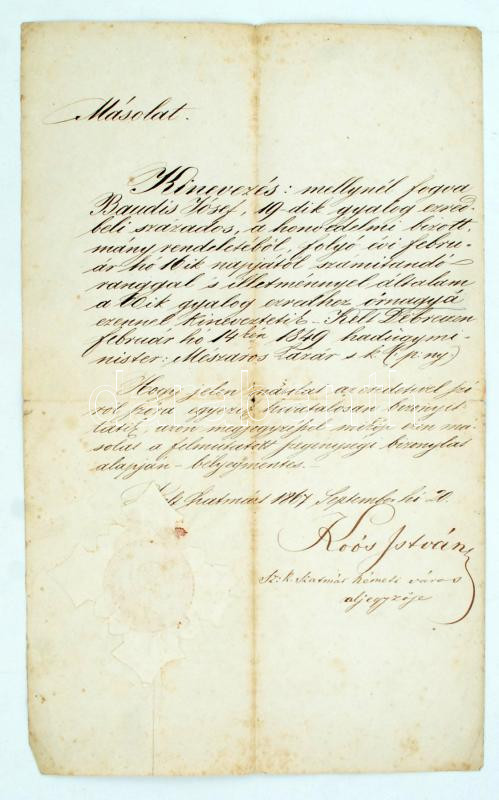 Másolat.
Kinevezés: mellynél fogva
Baudis József, 19-dik gyalog ezred
beli szazados, a honvédelmi bizott
mány rendeletéből, folyó évi febru-
ár hó 16ik napjától számitandó
ranggal s illetménnyel általam
a 60ik gyalog ezredhez őrnagyá
ezennel kineveztetik – Költ Debreczin
februar ho 14 kén 1849 hadügymi-
nister: Mészáros Lázár s. k. (p. ny)
Hogy jelen másolat az eredetivel
szóról szóra egyező hivatalosan bizonyit
tatik, azon megjegyzéssel miszerint ezen má-
solat a felmutatott szegénységi bizonylat
alapján – bélyegmentes. –
Kelt Szatmárt 1867 September hó 20.
Koós István
Sz. k. Szatmár Németi város
aljegyzője